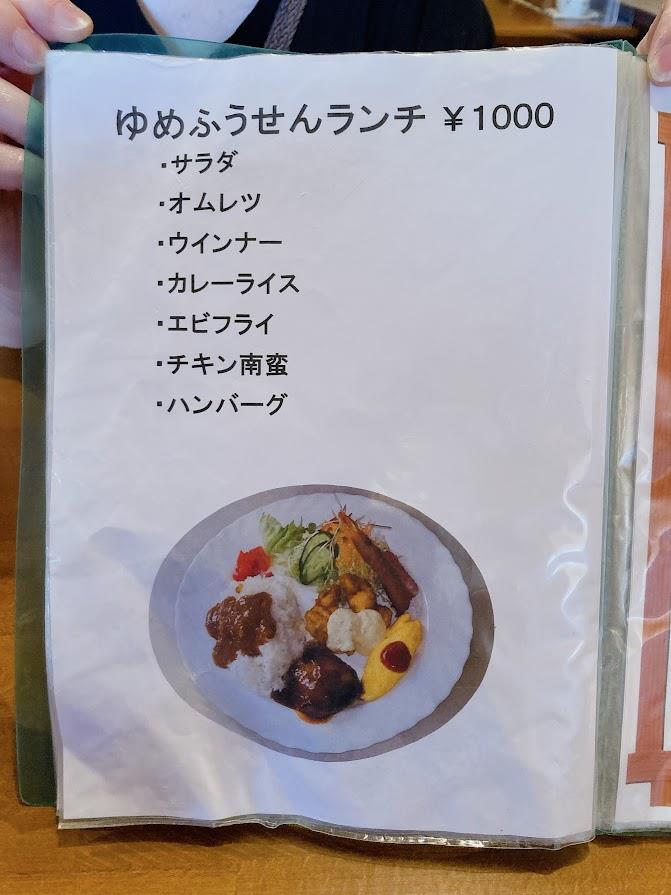 ゆめふうせんランチ ￥1000
・サラダ
・オムレツ
・ウインナー
・カレーライス
・エビフライ
・チキン南蛮
・ハンバーグ